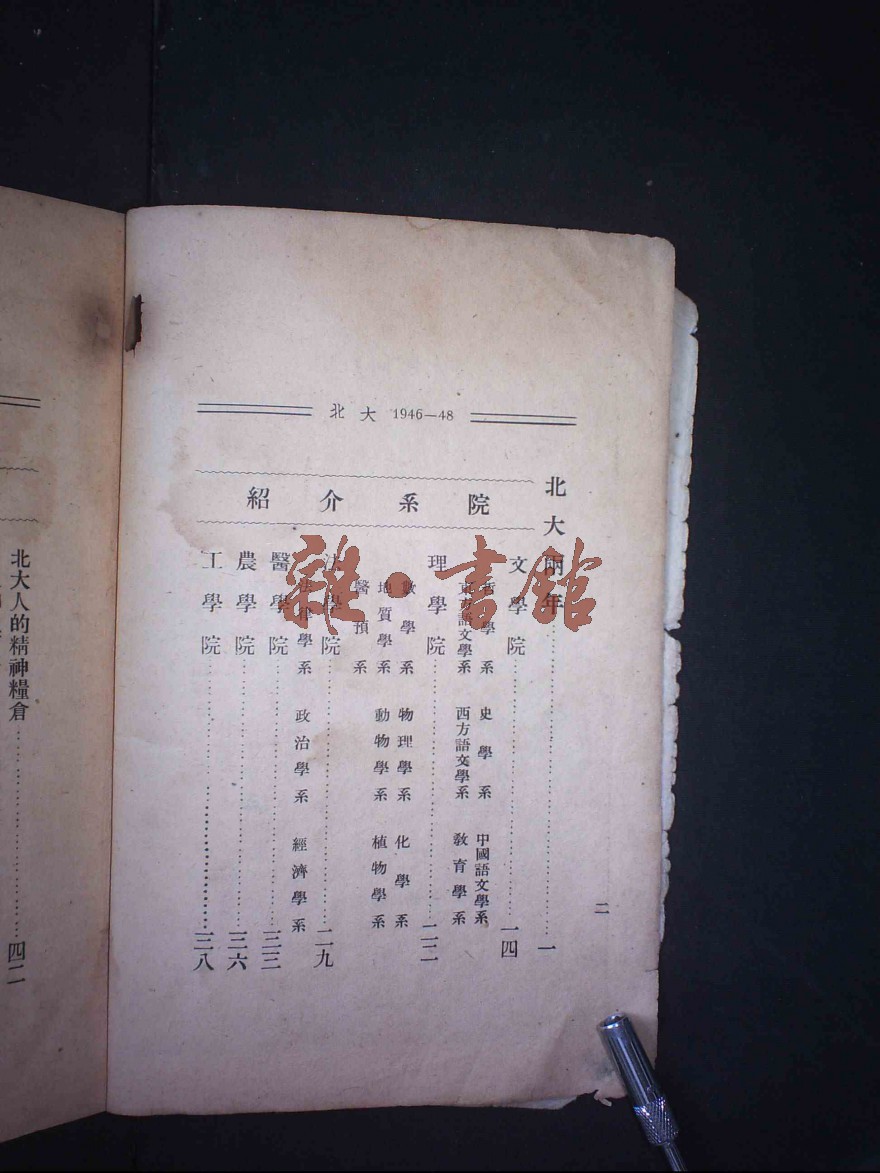 北大 1946—48
二
北大兩年……一
院系介紹
文學院……一四
哲學系 史學系 中國語文學系
東方語文學系 西方語文學系 教育學系
理學院……二二
數學系 物理學系 化學系
地質學系 動物學系 植物學系
醫預系
法學院……二九
法律學系 政治學系 經濟學系
醫學院……三三
農學院……三六
工學院……三八
北大人的精神糧倉……四二
雜·書館